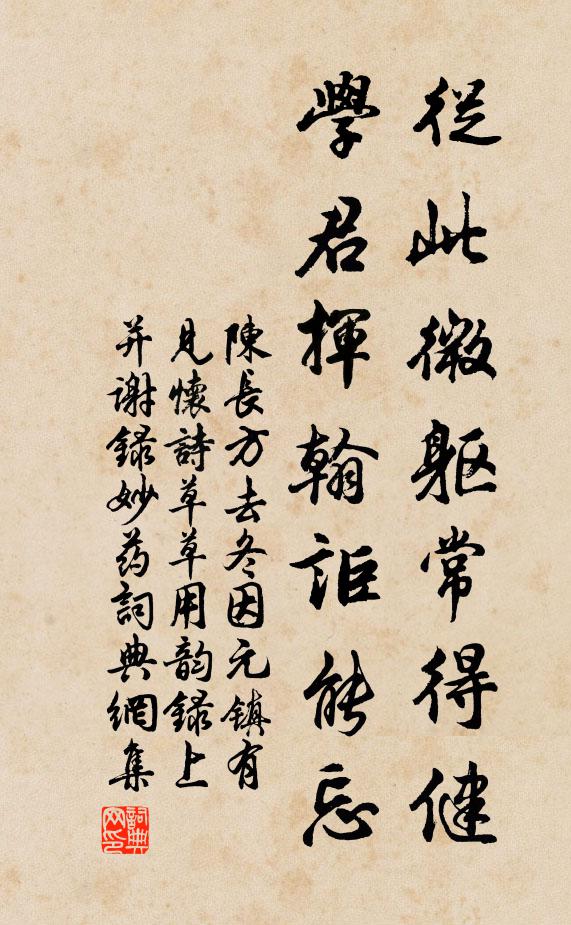 從此微軀常得健
學君揮翰詎能忘
陳長方去冬因元鎮有
見懷詩草草用韵録上
并谢録妙药詞典網集
詞典网印